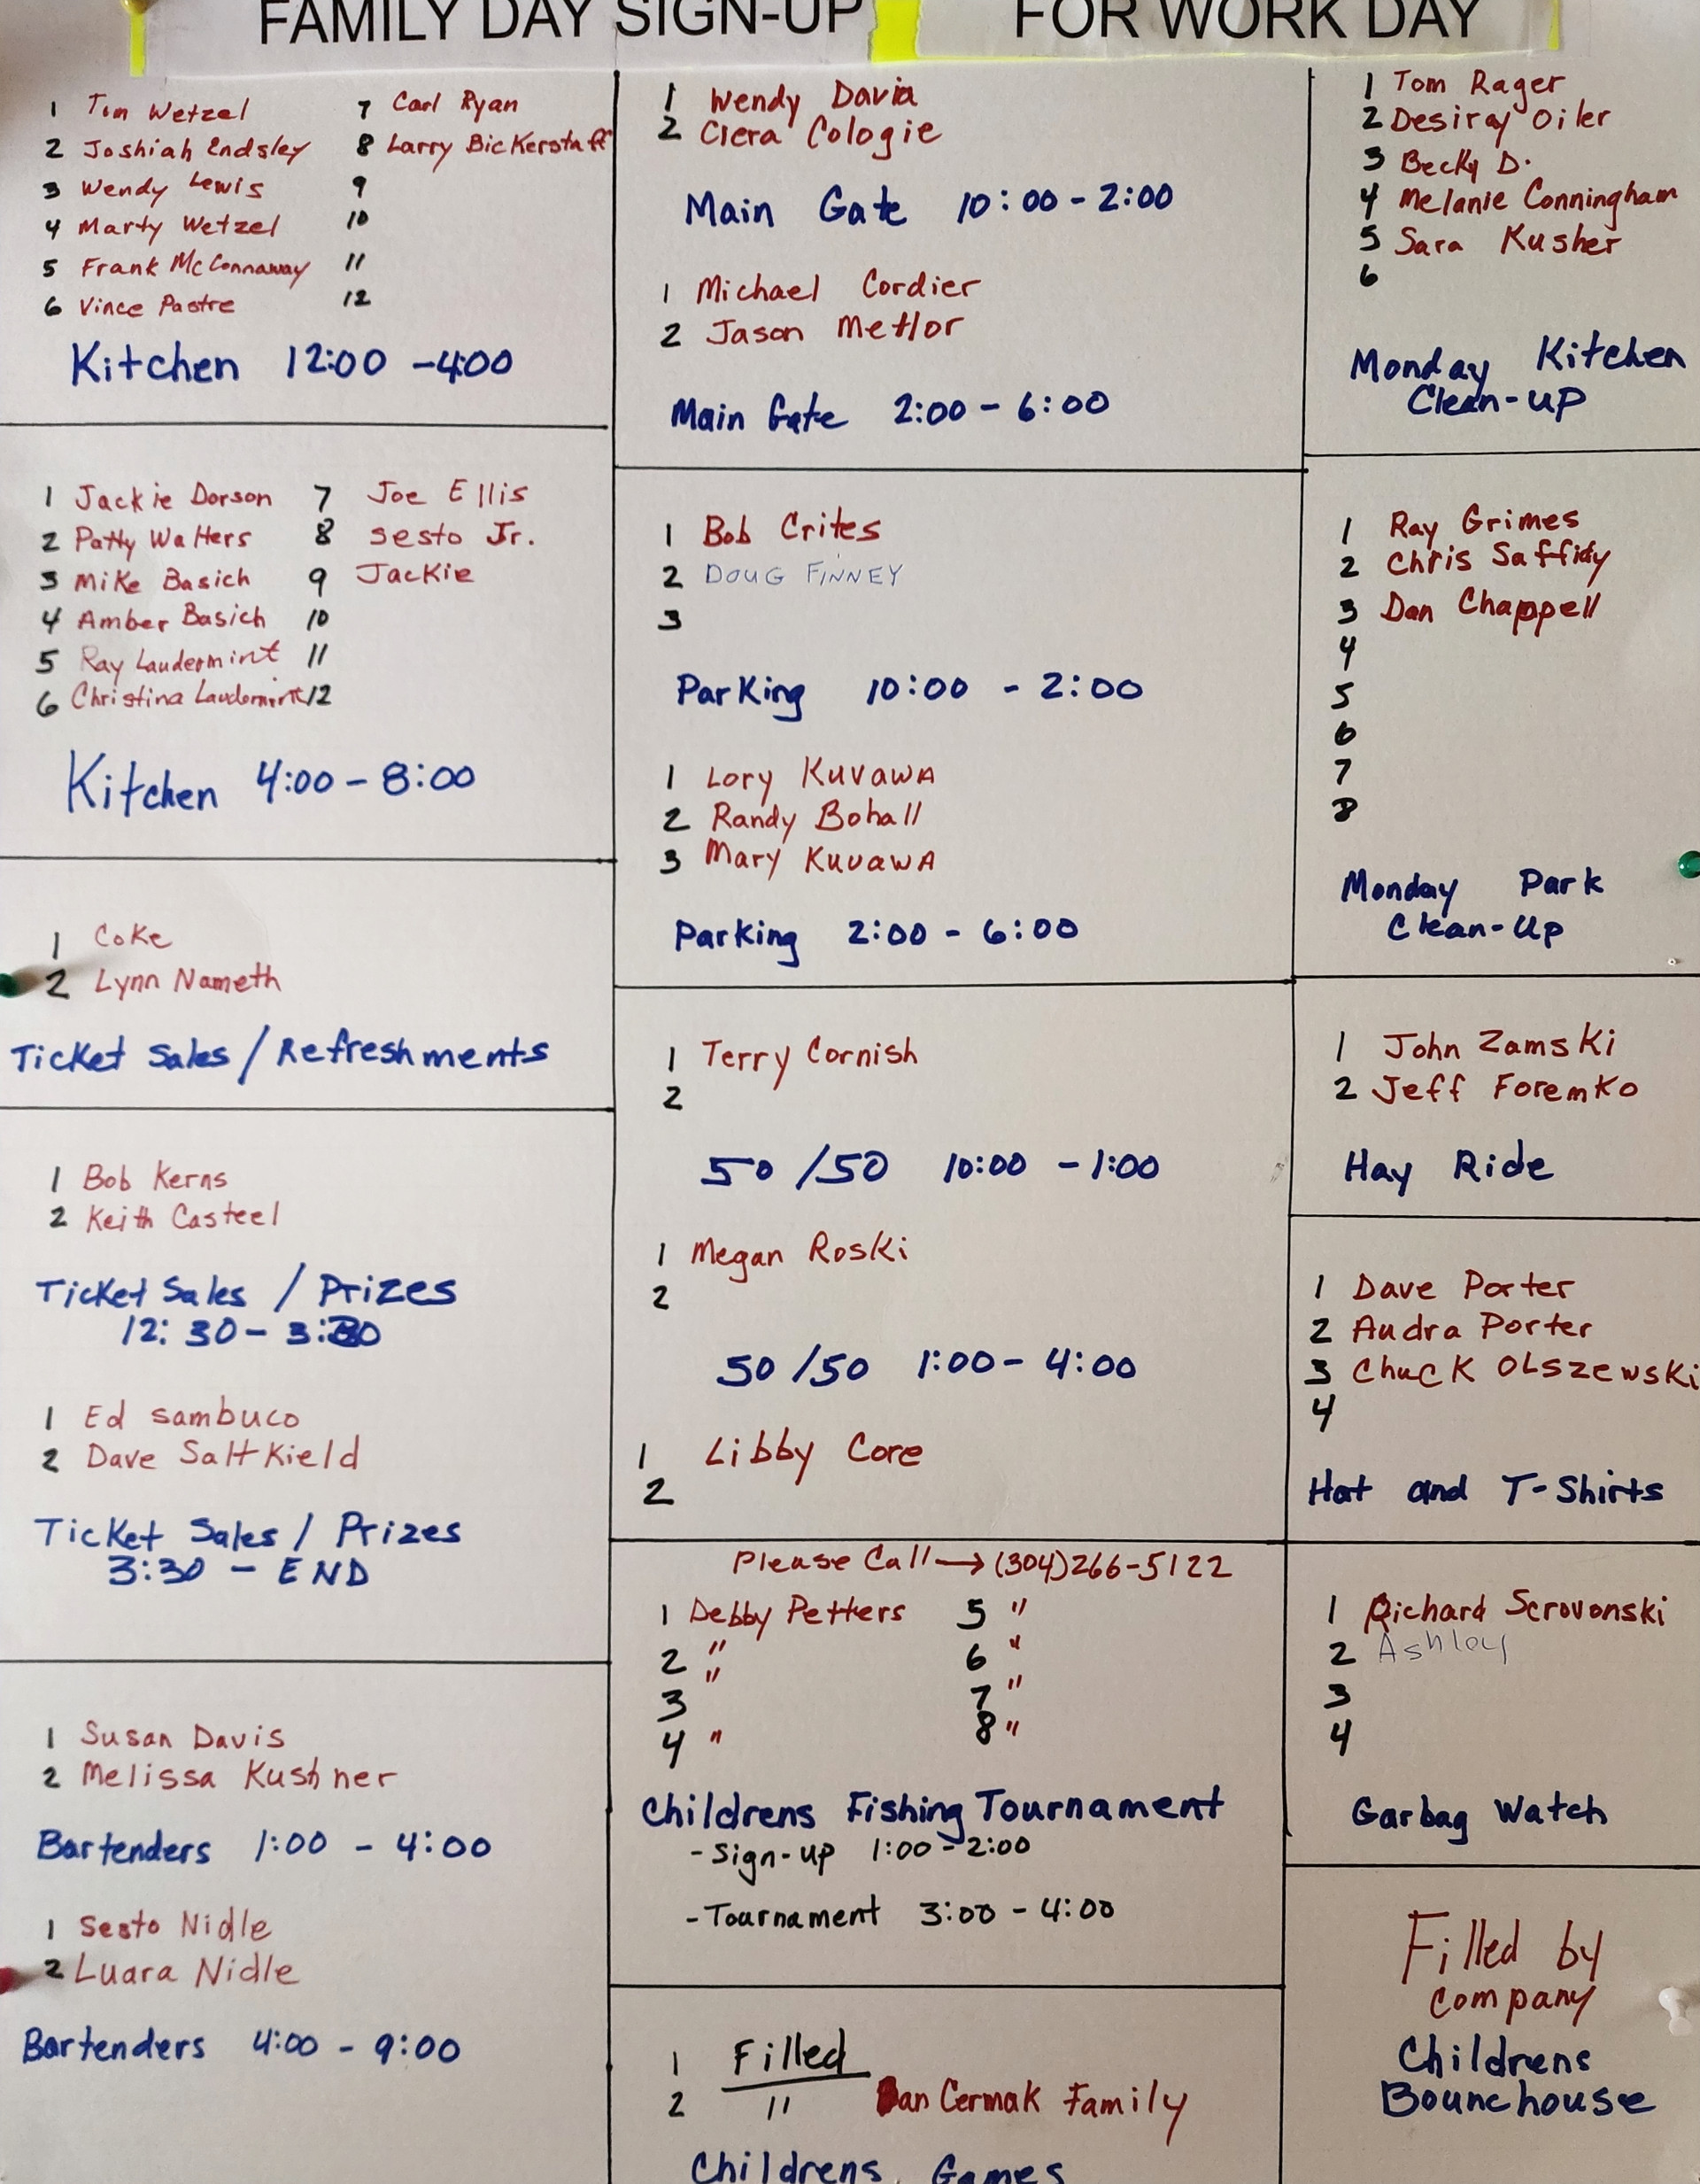 FAMILY DAY SIGN-UP FOR WORK DAY
1 Tom Wetzel 7 Carl Ryan
2 Joshiah Endsley 8 Larry Bickerstaff
3 Wendy Lewis 9
4 Marty Wetzel 10
5 Frank McConnaway 11
6 Vince Pastre 12
Kitchen 12:00 -4:00
1 Jackie Dorson 7 Joe Ellis
2 Patty Walters 8 Sesto Jr.
3 Mike Basich 9 Jackie
4 Amber Basich 10
5 Ray Laudermint 11
6 Christina Laudermint 12
Kitchen 4:00 - 8:00
1 Coke
2 Lynn Nameth
Ticket Sales / Refreshments
1 Bob Kerns
2 Keith Casteel
Ticket Sales / Prizes
12:30 - 3:30
1 Ed Sambuco
2 Dave Saltkield
Ticket Sales / Prizes
3:30 - END
1 Susan Davis
2 Melissa Kushner
Bartenders 1:00 - 4:00
1 Sesto Nidle
2 Luara Nidle
Bartenders 4:00 - 9:00
1 Wendy Davia
2 Clera Cologie
Main Gate 10:00 - 2:00
1 Michael Cordier
2 Jason Metlor
Main Gate 2:00 - 6:00
1 Bob Crites
2 DOUG FINNEY
3
Parking 10:00 - 2:00
1 Lory Kuvawa
2 Randy Bohall
3 Mary Kuvawa
Parking 2:00 - 6:00
1 Terry Cornish
2
50/50 10:00 - 1:00
1 Megan Roski
2
50/50 1:00 - 4:00
1 Libby Core
2
Please Call → (304)266-5122
1 Debby Petters 5 "
2 " 6 "
3 " 7 "
4 " 8 "
Childrens Fishing Tournament
- Sign-up 1:00 - 2:00
- Tournament 3:00 - 4:00
1 Filled
2 " Dan Cermak Family
Childrens Games
1 Tom Rager
2 Desiray Oiler
3 Becky D.
4 Melanie Conningham
5 Sara Kusher
6
Monday Kitchen
Clean-up
1 Ray Grimes
2 Chris Saffidy
3 Dan Chappell
4
5
6
7
8
Monday Park
Clean-Up
1 John Zamski
2 Jeff Foremko
Hay Ride
1 Dave Porter
2 Audra Porter
3 Chuck Olszewski
4
Hat and T-Shirts
1 Richard Scrovonski
2 Ashley
3
4
Garbag Watch
Filled by
company
Childrens
Bounchouse